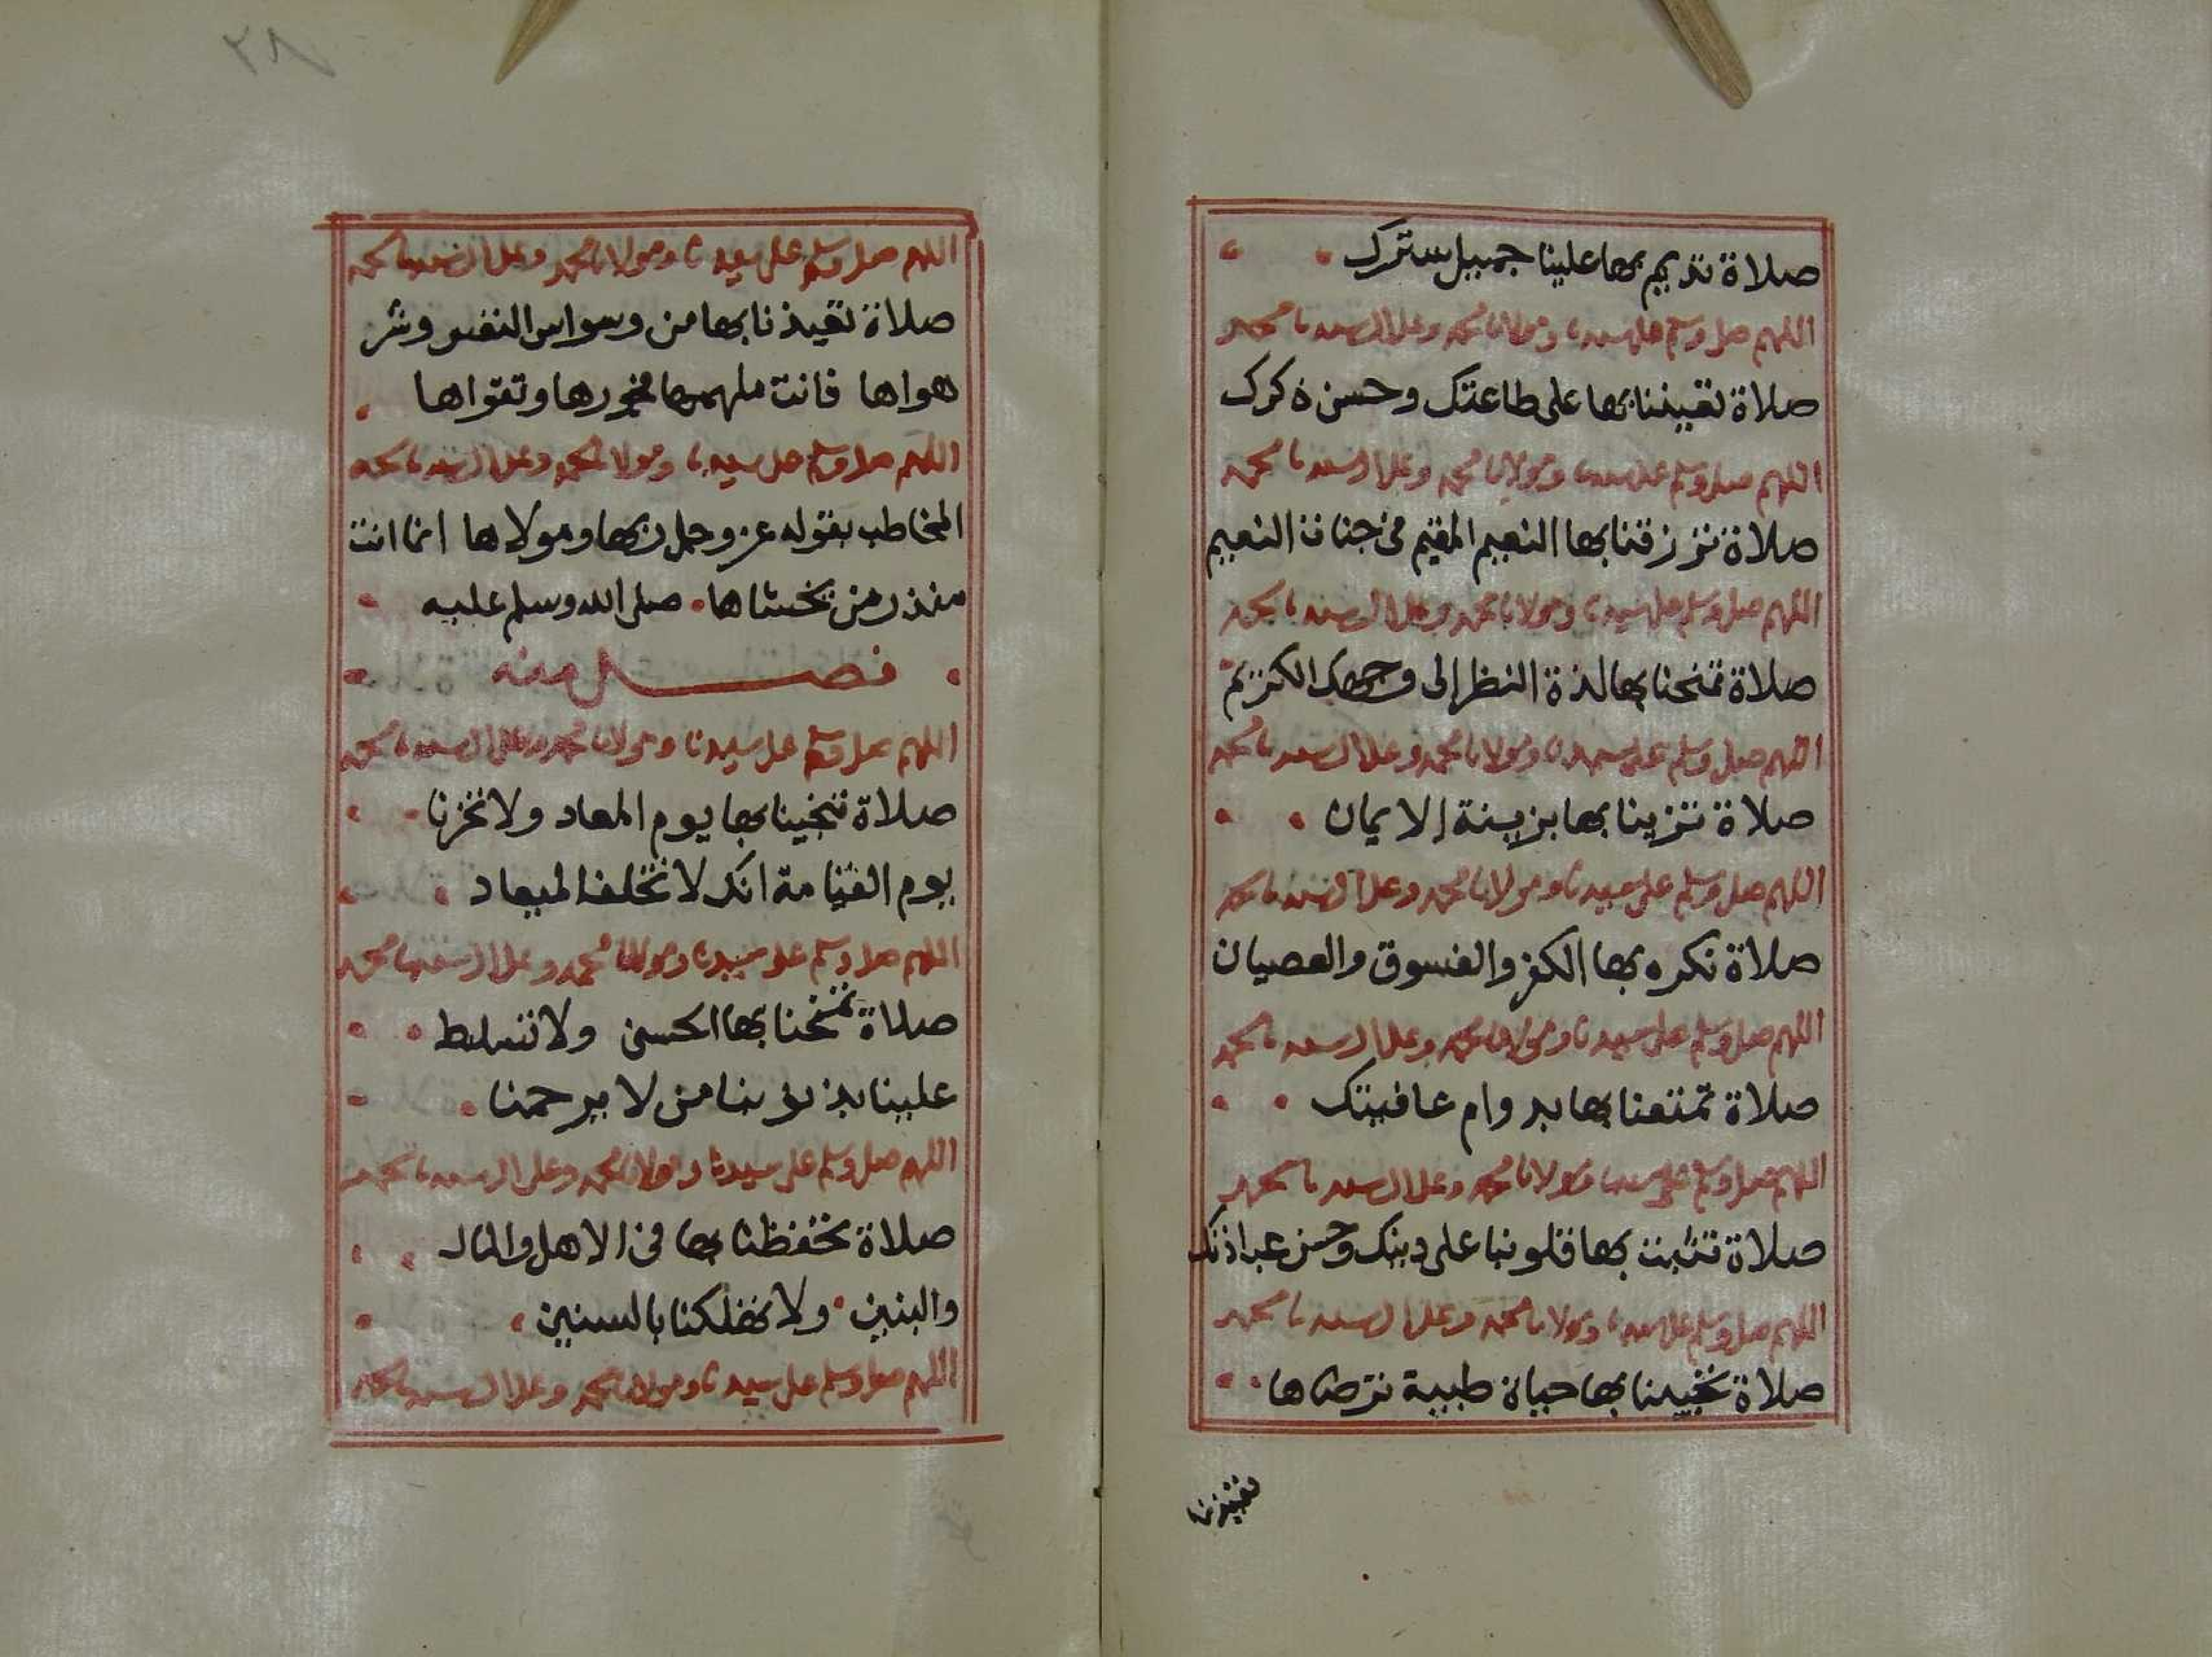 صلاة تديم بها علينا جميل سترك
اللهم صل وسلم على سيدنا ومولانا محمد وعلى ال سيدنا محمد
صلاة تعيننا بها على طاعتك وحسن ذكرك
اللهم صل وسلم على سيدنا ومولانا محمد وعلى ال سيدنا محمد
صلاة ترزقنا بها النعيم المقيم في جنات النعيم
اللهم صل وسلم على سيدنا ومولانا محمد وعلى ال سيدنا محمد
صلاة تمنحنا بها لذة النظر إلى وجهك الكريم
اللهم صل وسلم على سيدنا ومولانا محمد وعلى ال سيدنا محمد
صلاة تزينا بها بزينة الايمان
اللهم صل وسلم على سيدنا ومولانا محمد وعلى ال سيدنا محمد
صلاة نكره بها الكفر والفسوق والعصيان
اللهم صل وسلم على سيدنا ومولانا محمد وعلى ال سيدنا محمد
صلاة تمتعنا بها بدوام عافيتك
اللهم صل وسلم على سيدنا ومولانا محمد وعلى ال سيدنا محمد
صلاة تثبت بها قلوبنا على دينك وحسن عبادتك
اللهم صل وسلم على سيدنا ومولانا محمد وعلى ال سيدنا محمد
صلاة تحيينا بها حياة طيبة ترضاها
٢٨
اللهم صل وسلم على سيدنا ومولانا محمد وعلى ال سيدنا محمد
صلاة تعيذنا بها من وسواس النفس وشر
هواها فانت ملهمها فجورها وتقواها
اللهم صل وسلم على سيدنا ومولانا محمد وعلى ال سيدنا محمد
المخاطب بقوله عز وجل ربها ومولاها انما انت
منذر من يخشاها صلى الله وسلم عليه
فصل منه
اللهم صل وسلم على سيدنا ومولانا محمد وعلى ال سيدنا محمد
صلاة تنجينا بها يوم المعاد ولا تخزنا
يوم القيامة انك لا تخلف الميعاد
اللهم صل وسلم على سيدنا ومولانا محمد وعلى ال سيدنا محمد
صلاة تمنحنا بها الحسنى ولا تسلط
علينا بذنوبنا من لا يرحمنا
اللهم صل وسلم على سيدنا ومولانا محمد وعلى ال سيدنا محمد
صلاة تحفظنا بها في الاهل والمال
والبنين ولا تهلكنا بالسنين
اللهم صل وسلم على سيدنا ومولانا محمد وعلى ال سيدنا محمد